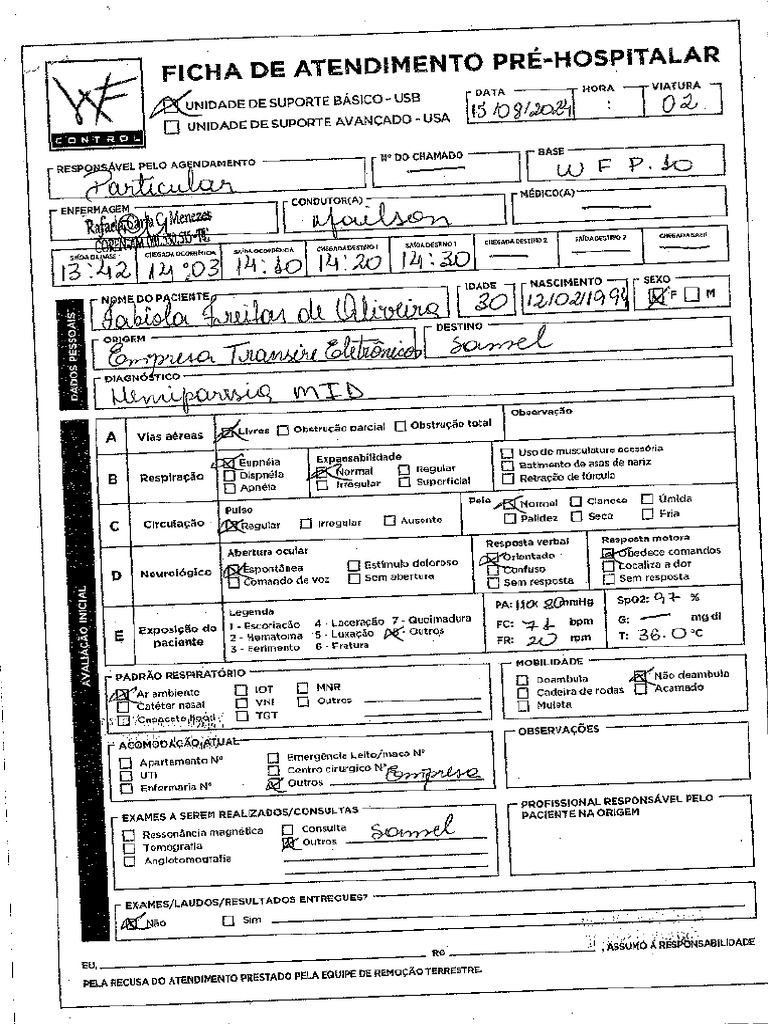 WF
CONTROL
FICHA DE ATENDIMENTO PRÉ-HOSPITALAR
UNIDADE DE SUPORTE BÁSICO - USB
UNIDADE DE SUPORTE AVANÇADO - USA
DATA 15/08/2024 HORA : VIATURA 02
RESPONSÁVEL PELO AGENDAMENTO Particular Nº DO CHAMADO BASE WFP.10
ENFERMAGEM Rafaela Carla C. Menezes CONDUTOR(A) Maelson MÉDICO(A)
SAÍDA DA BASE 13:42 CHEGADA OCORRÊNCIA 14:03 SAÍDA OCORRÊNCIA 14:10 CHEGADA DESTINO 1 14:20 SAÍDA DESTINO 1 14:30 CHEGADA DESTINO 2 SAÍDA DESTINO 2 CHEGADA BASE
DADOS PESSOAIS
NOME DO PACIENTE Fabiola Freitas de Oliveira IDADE 30 NASCIMENTO 12/02/1994 SEXO F M
ORIGEM Empresa Transire Eletrônicos DESTINO Samel
DIAGNÓSTICO Hemiparesia MID
AVALIAÇÃO INICIAL
A Vias aéreas Livres Obstrução parcial Obstrução total Observação
B Respiração Eupnéia Dispnéia Apnéia
Expansabilidade Normal Regular Irregular Superficial
Uso de musculatura acessória
Batimento de asas de nariz
Retração de fúrcula
C Circulação Pulso Regular Irregular Ausente
Pele Normal Cianose Úmida
Palidez Seca Fria
D Neurológico Abertura ocular
Espontânea Estímulo doloroso
Comando de voz Sem abertura
Resposta verbal
Orientado
Confuso
Sem resposta
Resposta motora
Obedece comandos
Localiza a dor
Sem resposta
E Exposição do paciente
Legenda
1 - Escoriação 4 - Laceração 7 - Queimadura
2 - Hematoma 5 - Luxação 8 - Outros
3 - Ferimento 6 - Fratura
PA: 110x80 mmHg SpO2: 97 %
FC: 71 bpm G: mg dl
FR: 20 rpm T: 36.0 °C
PADRÃO RESPIRATÓRIO
Ar ambiente IOT MNR
Catéter nasal VNI Outros
Capacete Hood TGT
MOBILIDADE
Deambula Não deambula
Cadeira de rodas Acamado
Muleta
ACOMODAÇÃO ATUAL
Apartamento Nº Emergência Leito/maca Nº
UTI Centro cirurgico Nº
Enfermaria Nº Outros Empresa
OBSERVAÇÕES
EXAMES A SEREM REALIZADOS/CONSULTAS
Ressonância magnética Consulta
Tomografia Outros Samel
Angiotomografia
PROFISSIONAL RESPONSÁVEL PELO
PACIENTE NA ORIGEM
EXAMES/LAUDOS/RESULTADOS ENTREGUES?
Não Sim
EU, RG , ASSUMO A RESPONSABILIDADE
PELA RECUSA DO ATENDIMENTO PRESTADO PELA EQUIPE DE REMOÇÃO TERRESTRE.